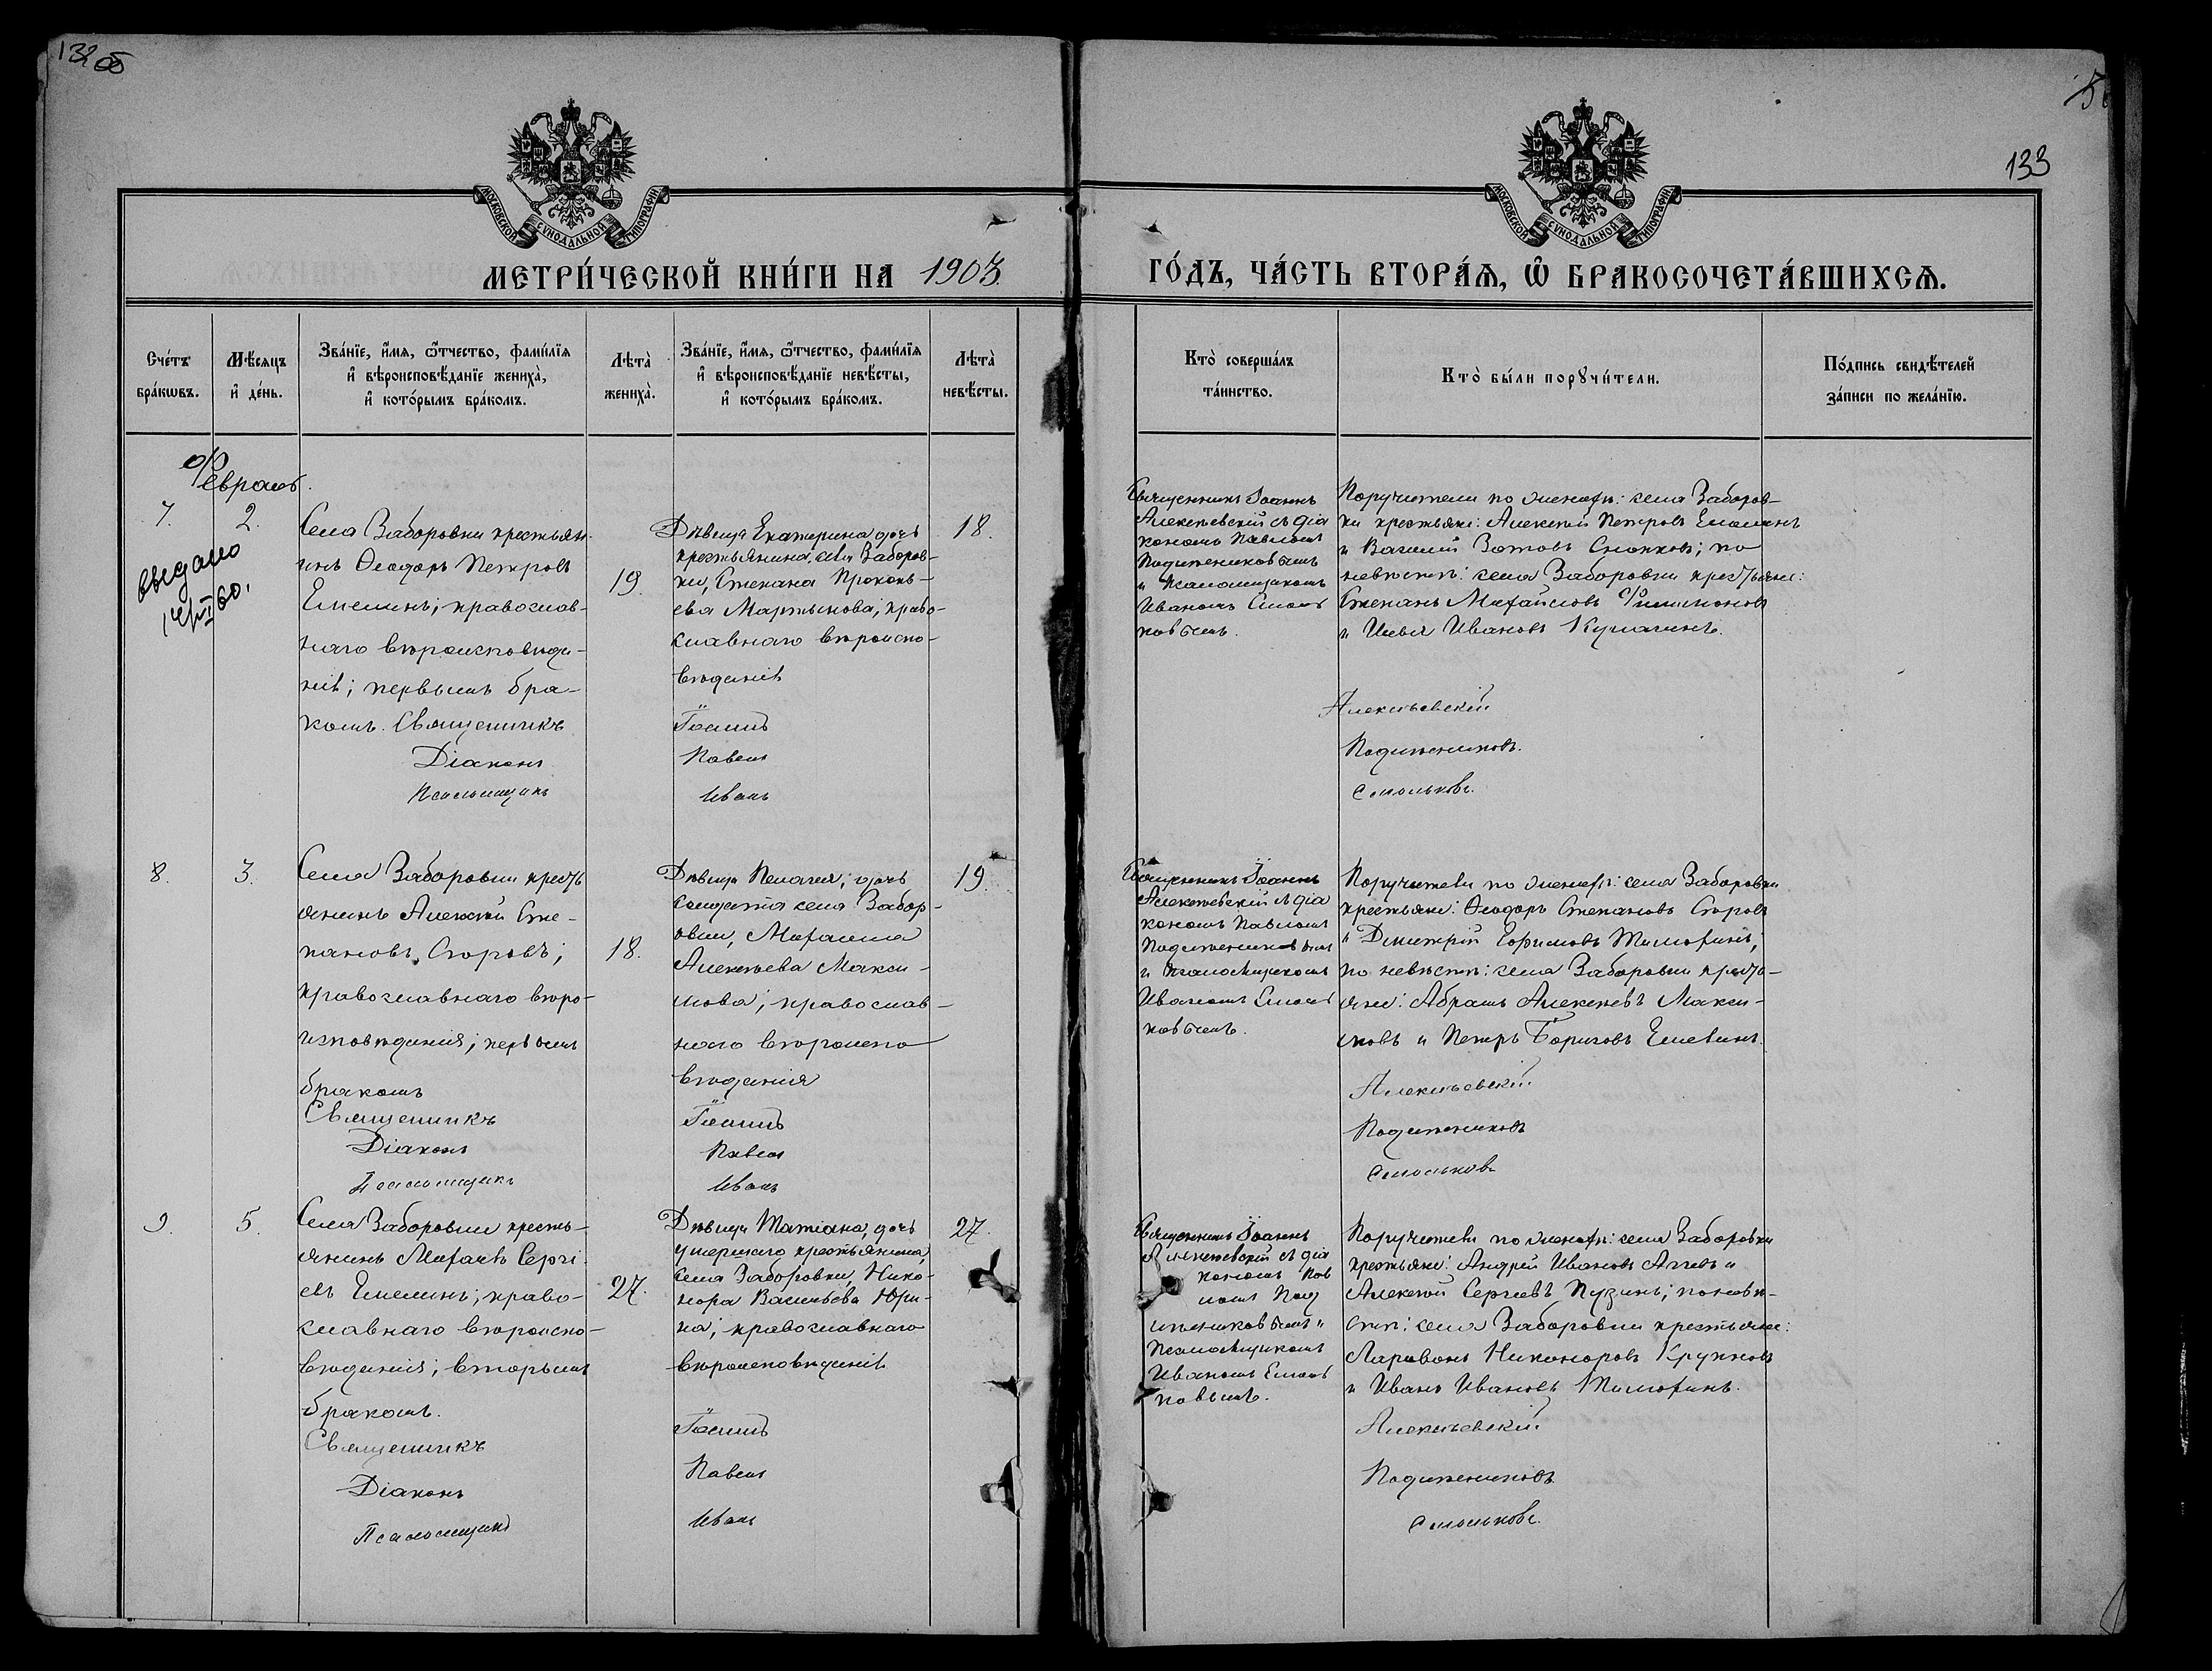 132 об
133
МОСКОВСКОЙ СѴНОДАЛЬНОЙ ТИПОГРАФІИ
МОСКОВСКОЙ СѴНОДАЛЬНОЙ ТИПОГРАФІИ
МЕТРИ́ЧЕСКОЙ КНИ́ГИ НА 1903
ГО́ДЪ, ЧА́СТЬ ВТОРА́Ѧ, Ѽ БРАКОСОЧЕТА́ВШИХСѦ.
Сче́тъ
бра́кѡвъ.
Мѣ́сяцъ
и҆ де́нь.
Зва́нїе, и҆́мя, ѻ҆́тчество, фами́лїя
и҆ вѣроисповѣ́данїе жениха̀,
и҆ кото́рымъ бра́комъ.
Лѣта̀
жениха̀.
Зва́нїе, и҆́мя, ѻ҆́тчество, фами́лїя
и҆ вѣроисповѣ́данїе невѣ́сты,
и҆ кото́рымъ бра́комъ.
Лѣта̀
невѣ́сты.
Кто̀ соверша́лъ
та́инство.
Кто̀ бы́ли порꙋчи́тели.
По́дпись свидѣ́телей
за́писи по жела́нїю.
Февраль.
7.
2.
выдано
Села Заборовки крестьян-
инъ Ѳеодоръ Петровъ
Емелинъ; православ-
наго вѣроисповѣда-
нія; первымъ бра-
комъ. Священникъ
Діаконъ
Псаломщикъ
19.
Дѣвица Екатерина, дочь
крестьянина села Заборов-
ки, Степана Прокопь-
ева Мартынова; право-
славнаго вѣроиспо-
вѣданія
Іоаннъ
Павелъ
Иванъ
18.
Священникъ Іоаннъ
Алексѣевскій съ діа
кономъ Павломъ
и Псаломщикомъ
Иваномъ Смоль
ковымъ.
Поручители по женихѣ: села Заборов-
ки крестьяне: Алексѣй Петровъ Емелинъ
и Василій Зотовъ; по
невѣстѣ: села Заборовки крестьяне:
Степанъ Михайловъ Филимоновъ
и Илья Ивановъ Кулагинъ.
Алексѣевскій
Смольковъ.
8.
3.
Села Заборовки кресть
янинъ Алексѣй Сте-
пановъ Егоровъ;
православнаго вѣро-
исповѣданія; первымъ
бракомъ
Священникъ
Діаконъ
Псаломщикъ
18.
Дѣвица Пелагея; дочь
солдата села Забор-
овки, Михаила
Алексѣева Макси-
мова; православ-
наго вѣроиспо
вѣданія
Іоаннъ
Павелъ
Иванъ
19.
Священникъ Іоаннъ
Алексѣевскій съ діа
кономъ Павломъ
и Псаломщикомъ
Иваномъ Смоль
ковымъ.
Поручители по женихѣ: села Заборовки
крестьяне: Ѳеодоръ Степановъ Егоровъ
и Дмитрій Ефимовъ Тимофинъ;
по невѣстѣ: села Заборовки кресть-
яне: Абрамъ Алексѣевъ Макси-
мовъ и Петръ Борисовъ Емелинъ.
Алексѣевскій
Смольковъ
9.
5.
Села Заборовки кресть-
янинъ Михаилъ Сергѣ-
евъ Емелинъ; право-
славнаго вѣроиспо-
вѣданія; вторымъ
бракомъ.
Священникъ
Діаконъ
Псаломщикъ
27.
Дѣвица Татіана, дочь
умершаго крестьянина
села Заборовки, Нико-
нора Васильева Юри-
на; православнаго
вѣроисповѣданія
Іоаннъ
Павелъ
Иванъ
27.
Священникъ Іоаннъ
Алексѣевскій съ діа
кономъ Пав
ломъ
Псаломщикомъ
Иваномъ Смоль
ковымъ.
Поручители по женихѣ: села Заборовки
крестьяне: Андрей Ивановъ и
Алексѣй Сергѣевъ Пузинъ; по невѣ-
стѣ: села Заборовки крестьяне:
Ларивонъ Никоноровъ
и Иванъ Ивановъ Тимофинъ.
Алексѣевскій
Смольковъ.